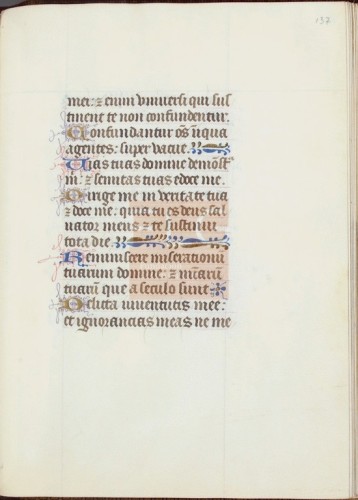 137
mei: ⁊ enim vniuersi qui sus
tinent te non confundentur.
Confundantur oēs iniqua
agentes: super vacue.
Uias tuas domine demōst͛
m̄: ⁊ semitas tuas edoce me.
Dirige me in veritate tua
⁊ doce me. quia tu es deus sal
uator meus ⁊ te sustinui
tota die.
Reminiscere miserationū
tuarum domine: ⁊ mīarum
tuarū que a seculo sunt.
Delicta iuuentutis mee:
et ignorancias meas ne me